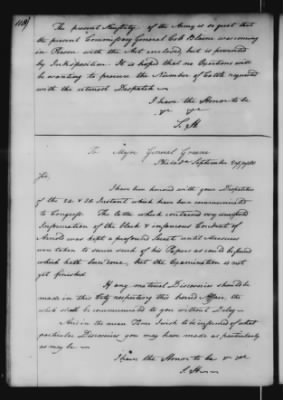 118
The present Necessity of the Army is so great that
the present Commissary General Col. Blaine was coming
in Person with the Act enclosed, but is prevented
by Indisposition. It is hoped that no Exertions will
be wanting to procure the Number of Cattle requested
with the utmost Dispatch
I have the Honor to be
&c &c
S. H
To Major General Greene
Philada September
Sir,
I have been honored with your Dispatches
of the 22 & 23 Instant which have been communicated
to Congress. The letter which contained very
Information of the black & infamous Conduct of
Arnold was kept a profound Secret until Measures
were taken to secure such of his Papers as could be found
which hath been done, but the Examination is not
yet finished
If any material Discoveries should be
made in this City respecting this horrid Affair, the
shall be communicated to you without Delay
And in the mean Time I wish to be informed of what
particular Discoveries you may have made as particularly
as may be
I have the Honor to be & &c
S. H